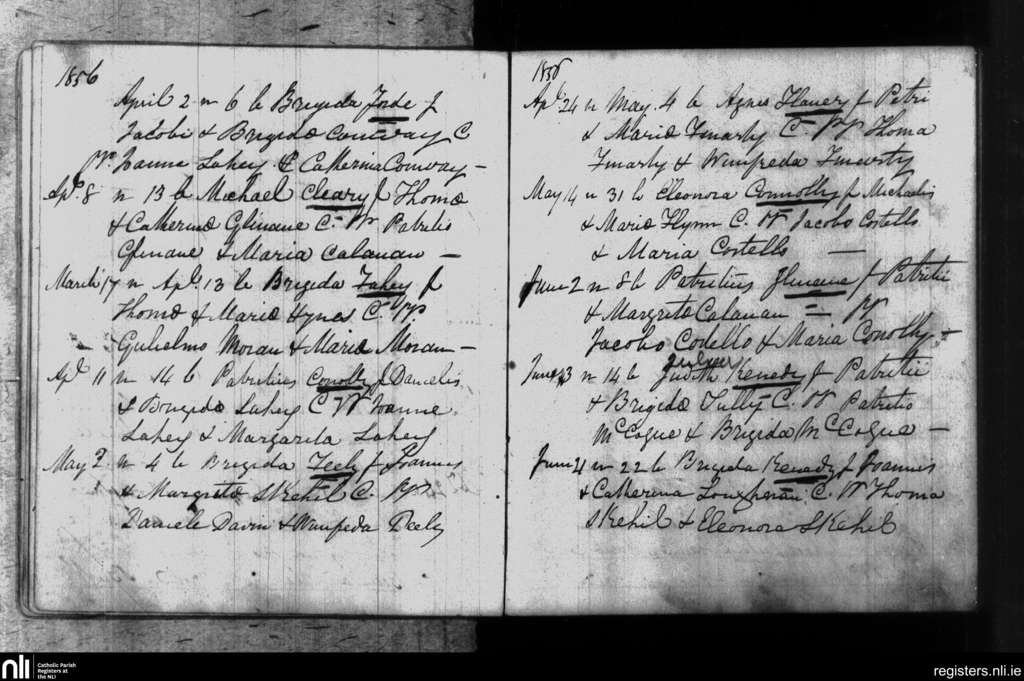 1856
April 2 n 6 b Brigida Forde f
Jacobi & Brigidæ Conway C
Pr. Joanne Lahey & Catherina Conway —
Apl. 8 n 13 b Michael Cleary f Thomæ
& Catherinæ Glinane C. Pr Patritio
Glinane & Maria Calanan —
March 17 n Apl. 13 b Brigida Fahey f
Thomæ & Mariæ Hynes C. Pp
Gulielmo Moran & Maria Moran —
Apl 11 n 14 b Patritius Conolly f Danielis
& Brigidæ Lahey C Pr Joanne
Lahey & Margarita Lahey
May 2 n 4 b Brigida Feely f Joannis
& Margritæ Skehil C. Pp
Daniele Davin & Winifreda Feely
1856
Apl. 24 n May. 4 b Agnes Flanery f Petri
& Mariæ C. Pp Thoma
& Winifreda
May 14 n 31 b Eleonora Connolly f Michaelis
& Mariæ Flynn C. Pr Jacobo Costello
& Maria Costello —
June 2 n 8 b Patritius Glinane f Patritii
& Margritæ Calanan — Pr
Jacobo Codello & Maria Conolly —
June 13 n 14 b Judith Kenedy f Patritii
& Brigidæ Tully C. Pr Patritio
McCogue & Brigida McCogue —
June 21 n 22 b Brigida Kenedy f Joannis
& Catherina Loughnan C. Pr Thoma
Skehil & Eleonora Skehil
nli Catholic Parish
Registers at
the NLI
registers.nli.ie